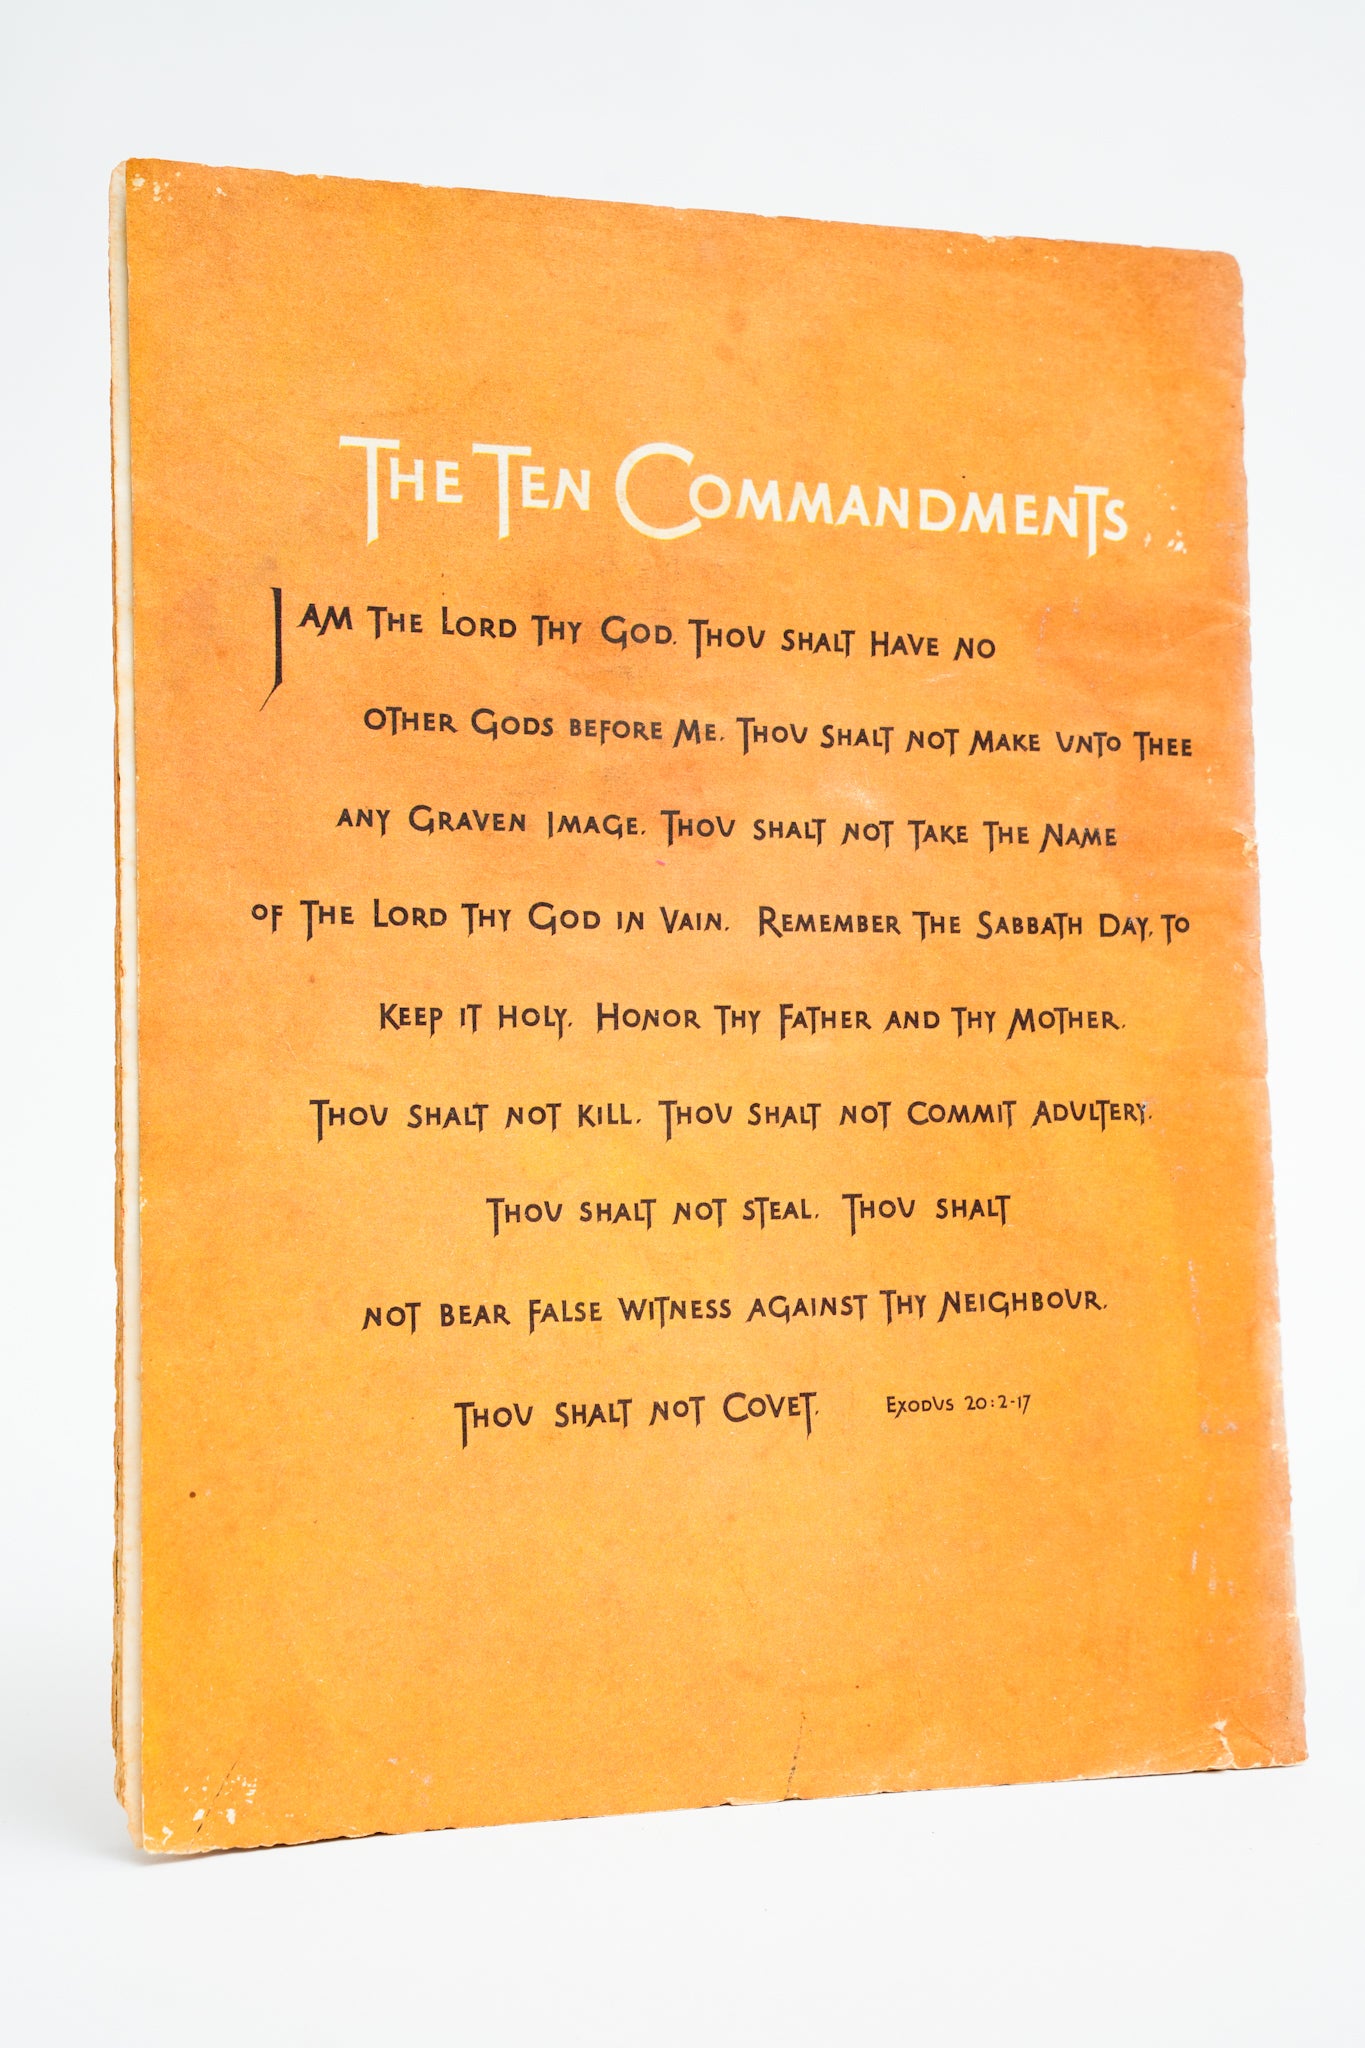 The Ten Commandments
I am the Lord thy God. Thou shalt have no
other Gods before Me. Thou shalt not make unto thee
any Graven Image. Thou shalt not take the Name
of the Lord thy God in Vain. Remember the Sabbath Day, to
keep it holy. Honor thy Father and thy Mother.
Thou shalt not kill. Thou shalt not commit adultery.
Thou shalt not steal. Thou shalt
not bear false witness against thy Neighbour.
Thou shalt not Covet. Exodus 20:2-17